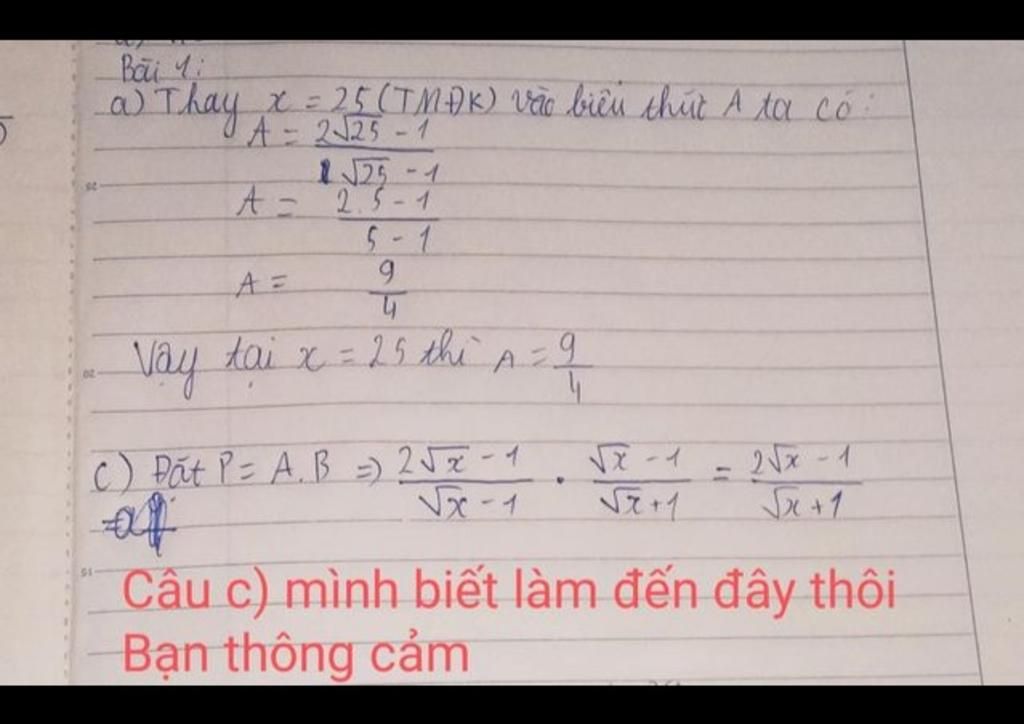 Bài 1:
a) Thay x = 25 (TMĐK) vào biểu thức A ta có:
A = (2√25 - 1)/(√25 - 1)
A = (2.5 - 1)/(5 - 1)
A = 9/4
Vậy tại x = 25 thì A = 9/4
c) Đặt P = A.B => (2√x - 1)/(√x - 1) . (√x - 1)/(√x + 1) = (2√x - 1)/(√x + 1)
Câu c) mình biết làm đến đây thôi
Bạn thông cảm